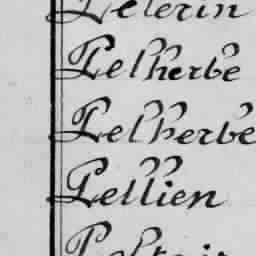 Pelerin
Pelherbe
Pelherbe
Pellien